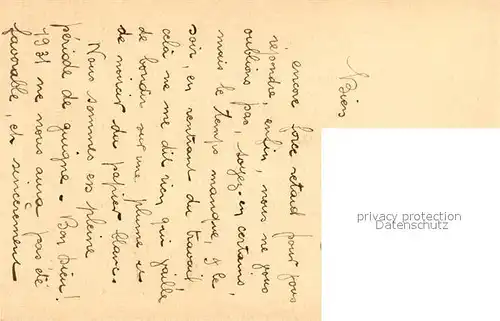 Bien
encore force retard pour vous
répondre ; enfin, nous ne vous
oublions pas, soyez-en certains,
mais le temps manque, & le
soir, en rentrant du travail
celà ne me dit rien qui vaille
de bondir sur une plume et
de noircir du papier blanc.
Nous sommes en pleine
période de guigne. Bon Dieu !
1931 ne nous aura pas été
favorable, et sincèrement
privacy protection
Datenschutz